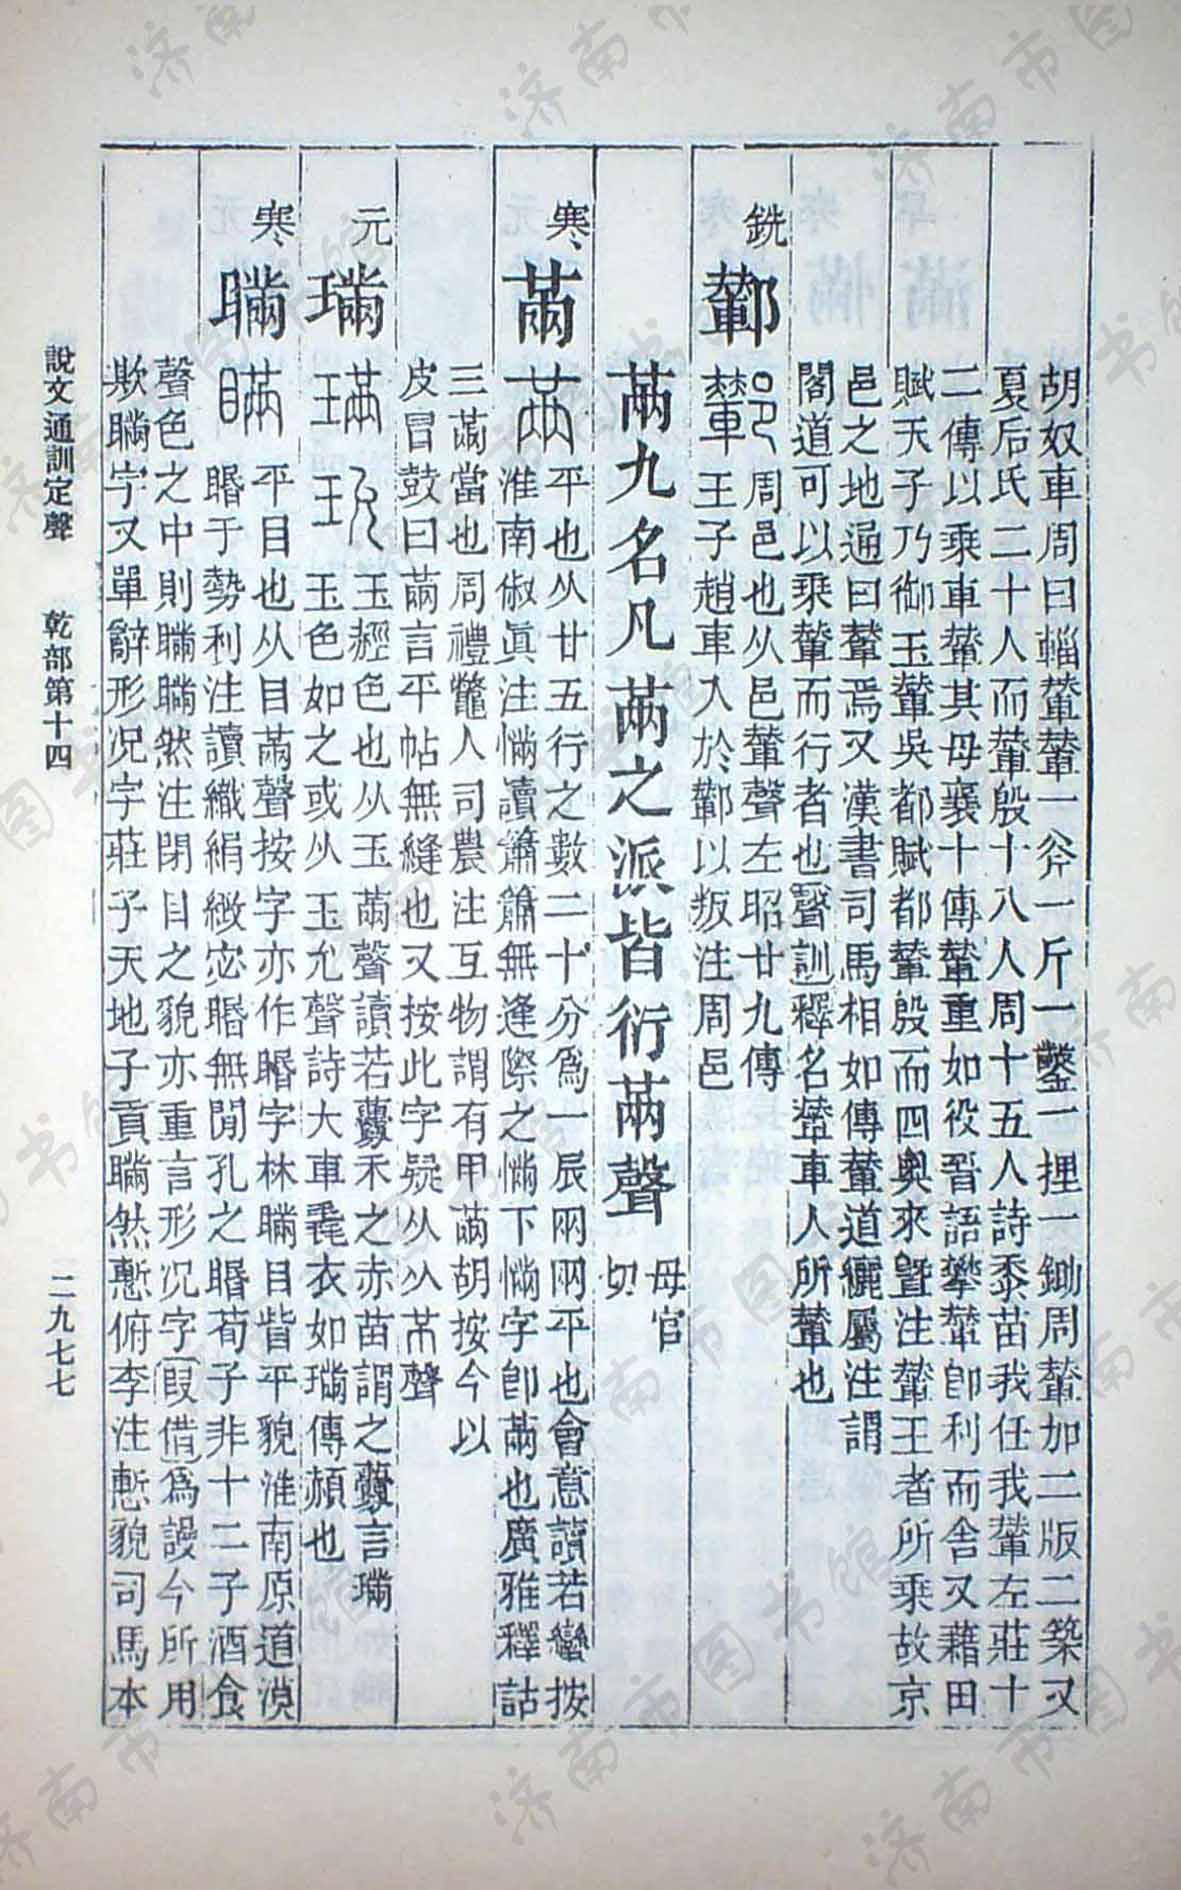 胡奴車周曰輜輦輦一斧一斤一鑿一梩一鋤周輦加二版二築又
夏后氏二十人而輦殷十八人周十五人詩黍苗我任我輦左莊十
二傳以乘車輦其母襄十傳輦重如役晉語攀輦卽利而舍又藉田
賦天子乃御玉輦吳都賦都輦殷而四奧來曁注輦王者所乘故京
邑之地通曰輦焉又漢書司馬相如傳輦道纚屬注謂
閣道可以乘輦而行者也聲訓釋名輦車人所輦也
銑
鄻
周邑也从邑輦聲左昭廿九傳
王子趙車入於鄻以叛注周邑
㒼九名凡㒼之派皆衍㒼聲
母官
切
寒
㒼
平也从廿五行之數二十分爲一辰㒳㒳平也會意讀若蠻按
淮南俶眞注慲讀簫簫無逢際之慲下慲字卽㒼也廣雅釋詁
三㒼當也周禮鼈人司農注互物謂有甲㒼胡按今以
皮冒鼓曰㒼言平帖無縫也又按此字疑从从 聲
元
璊
玉䞓色也从玉㒼聲讀若虋禾之赤苗謂之虋言璊
玉色如之或从玉允聲詩大車毳衣如璊傳赬也
寒
瞞
平目也从目㒼聲按字亦作䁕字林瞞目眥平貌淮南原道漠
䁕于勢利注讀織絹緻密䁕無閒孔之䁕荀子非十二子酒食
聲色之中則瞞瞞然注閉目之貌亦重言形況字叚借爲謾今所用
欺瞞字又單辭形况字莊子天地子貢瞞然慙俯李注慙貌司馬本
說文通訓定聲
乾部第十四
二九七七
济南市图书馆